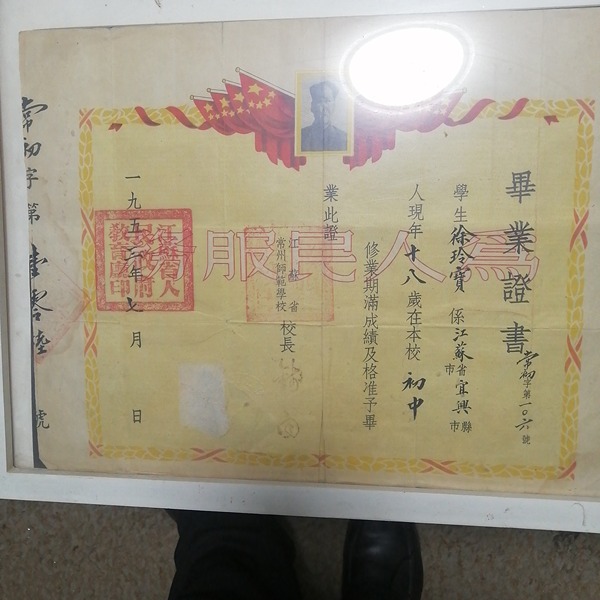 畢業證書
常初字第一〇六號
學生徐玲寶係江蘇省市宜興縣市
人現年十八歲在本校初中
修業期滿成績及格准予畢
業此證
江蘇省
常州師範學校校長
一九五三年七月 日
為人民服務
江蘇省人
民政府
教育廳印
常初字第壹零陸號